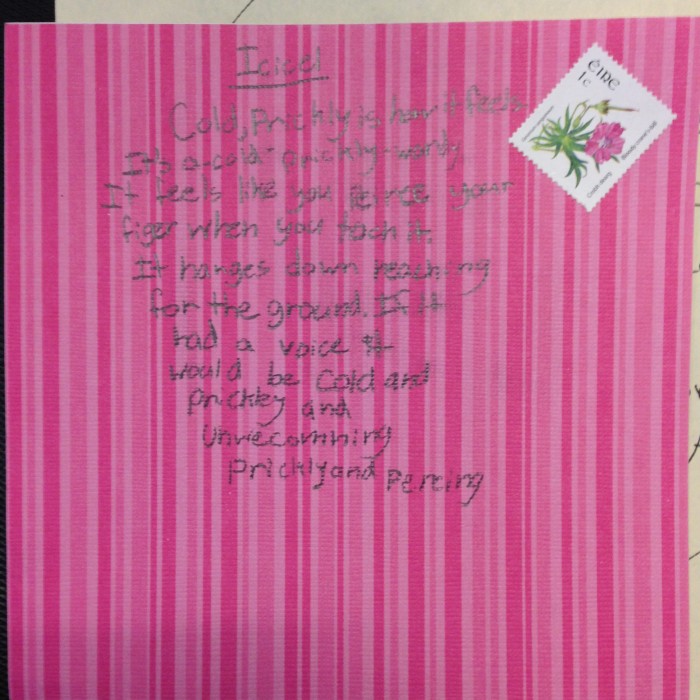 Icicel
Cold, Prickly is how it feels
It's a cold prickly-wordy
It feels like you peirce your
figer when you toch it.
It hanges down reaching
for the ground. If it
had a voice it
would be Cold and
prickley and
unwecomming
prickly and percing
éIRe
1c